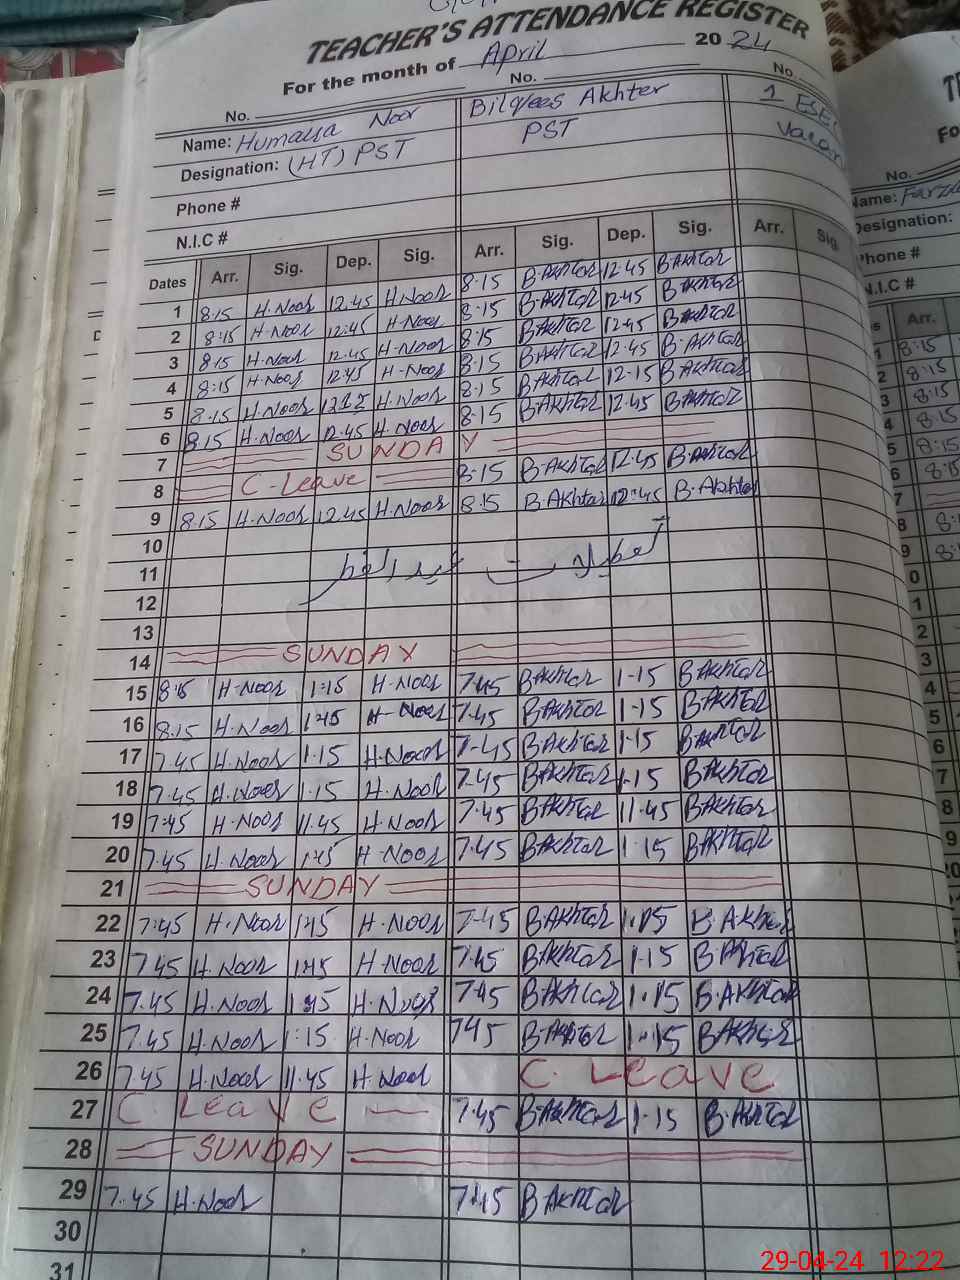 TEACHER'S ATTENDANCE REGISTER
For the month of April 2024
No. No. No.
Name: Humaira Noor Bilqees Akhter 1 ESE
Designation: (HT) PST PST
Phone #
N.I.C #
Dates Arr. Sig. Dep. Sig. Arr. Sig. Dep. Sig. Arr. Sig.
1 8:15 H.Noor 12.45 H.Noor 8.15 B.Akhtar 12.45 B.Akhtar
2 8:15 H.Noor 12:45 H.Noor 8:15 B.Akhtar 12.45 B.Akhtar
3 8:15 H.Noor 12.45 H.Noor 8:15 B.Akhtar 12.45 B.Akhtar
4 8:15 H.Noor 12.45 H-Noor 8:15 B.Akhtar 12.45 B.Akhtar
5 8:15 H.Noor H.Noor 8:15 B.Akhtar 12-15 B.Akhtar
6 8.15 H.Noor 12.45 H.Noor 8:15 B.Akhtar 12.45 B.Akhtar
7 SUNDAY
8 C-Leave 8:15 B.Akhtar 12.45 B.Akhtar
9 8.15 H.Noor 12.45 H.Noor 8:15 B.Akhtar 12:45 B.Akhtar
10
11 تعطیلات عید الفطر
12
13
14 SUNDAY
15 8:15 H-Noor 1:15 H.Noor 7.45 B.Akhtar 1-15 B.Akhtar
16 8.15 H.Noor H-Noor 7.45 B.Akhtar 1-15 B.Akhtar
17 7.45 H.Noor 1.15 H.Noor 7-45 B.Akhtar 1.15 B.Akhtar
18 7.45 H.Noor 1.15 H.Noor 7.45 B.Akhtar 1.15 B.Akhtar
19 7:45 H.Noor 11.45 H.Noor 7.45 B.Akhtar 11.45 B.Akhtar
20 7.45 H.Noor H-Noor 7.45 B.Akhtar 1.15 B.Akhtar
21 SUNDAY
22 7:45 H.Noor H.Noor 7-45 B.Akhtar 1.15 B.Akhtar
23 7.45 H.Noor H.Noor 7.45 B.Akhtar 1-15 B.Akhtar
24 7.45 H.Noor H.Noor 7.45 B.Akhtar 1.15 B.Akhtar
25 7.45 H.Noor 1:15 H.Noor 745 B.Akhtar 1.15 B.Akhtar
26 7.45 H.Noor 11.45 H.Noor C. Leave
27 C. Leave 7.45 B.Akhtar 1-15 B.Akhtar
28 SUNDAY
29 7.45 H.Noor 7.45 B.Akhtar
30
31
No.
Designation:
Arr.
8:15
8:15
8:15
8:15
8:15
29-04-24 12:22